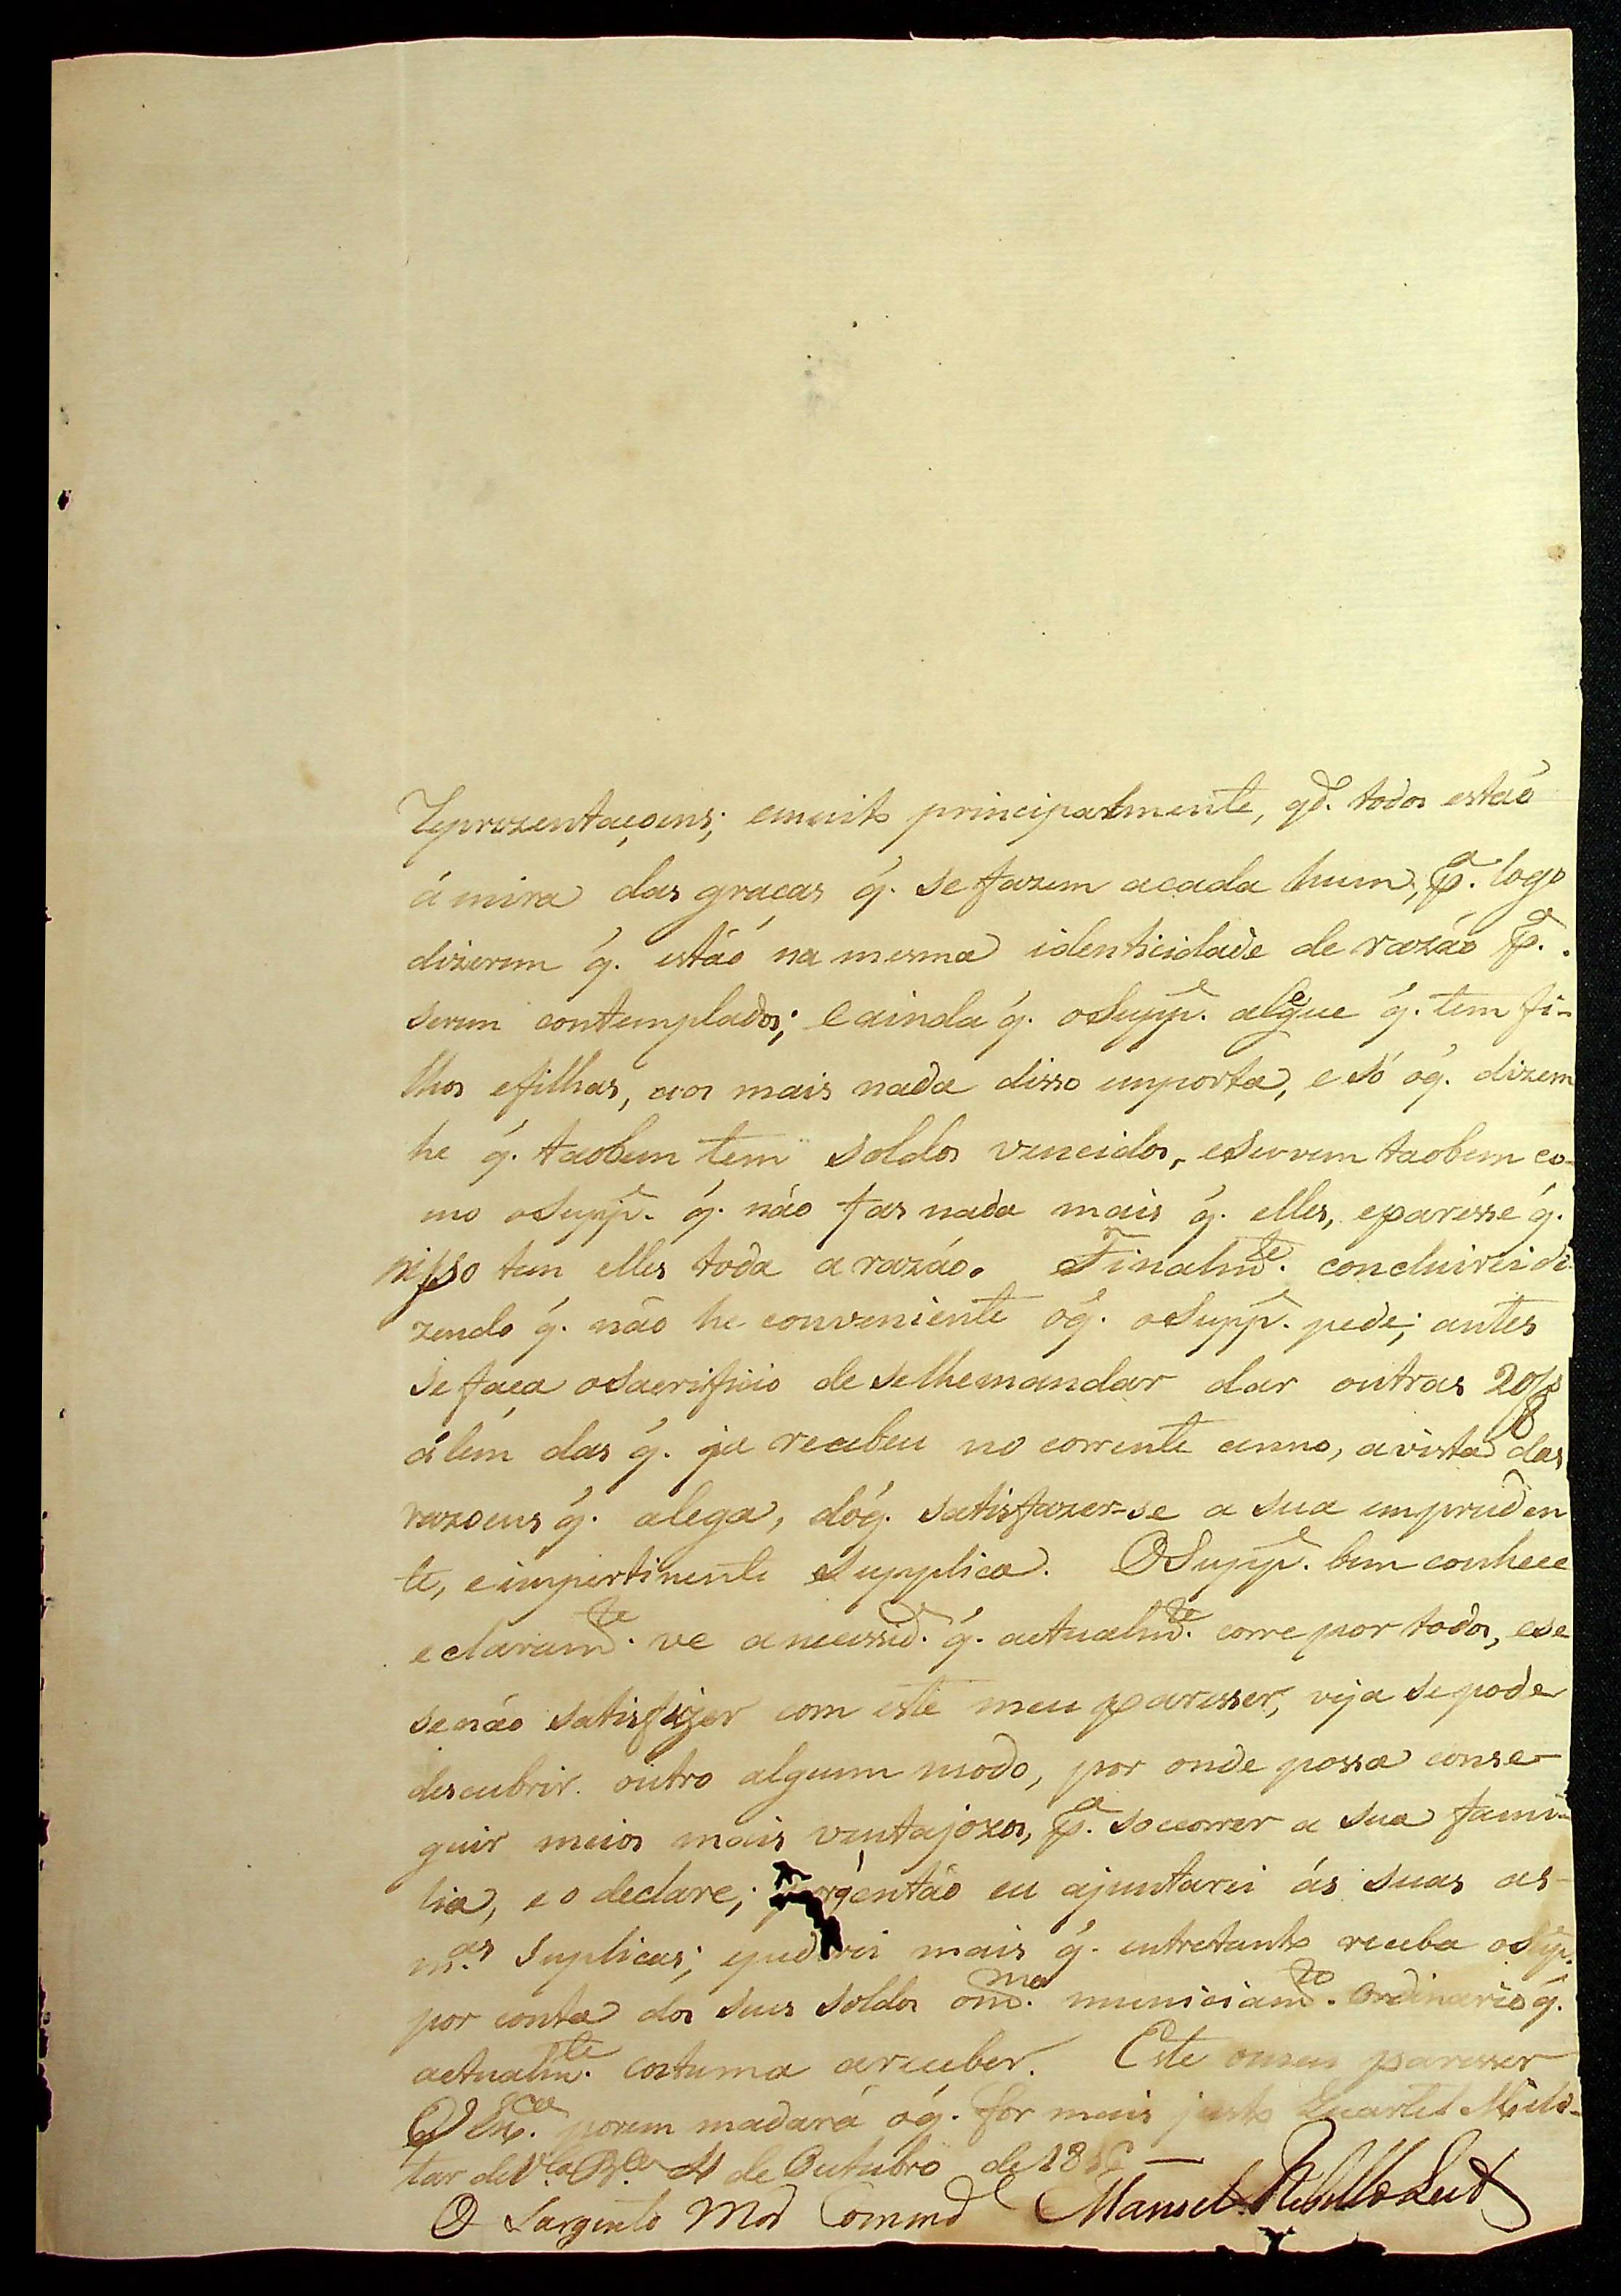 reprezentaçoens; emuito principalmente, qd.º todos estaõ
á mira das graças q̃. se fazem acada hum, p.ª logo
dizerem q̃. estáõ na mesma identicidade de razáo p.ª
serem contemplados; e ainda q̃. oSupp.e alegue q̃. tem fi-
lhos efilhas, aos mais nada disso importa, e só oq̃. dizem
he q̃. taobem tem soldos vencidos, eservem taobem co-
mo oSupp.e q̃. não fas nada mais q̃. elles, eparesse q̃.
nisso tem elles toda arazáo. Finalm.te concluirei di-
zendo q̃. não he conveniente oq̃. oSupp.e pede; antes
se faça osacrificio de selhemandar dar outras 20/8
além das q̃. ja recebeu no corrente anno, avista das
razoens q̃. alega, doq̃. satisfazer-se a sua impruden
te, eimpertinente Supplica. OSupp.e bem conhece
eclaram.te ve anecessid.e q̃. actualm.te corre por todos, ese
senáo satisfizer com este meu paresser, veja sepode
descubrir outro algum modo, por onde possa conse-
guir meios mais ventajozos, p.ª socorrer a sua fami-
lia, e o declare; porq̃entáo eu ajuntarei ás suas as
m.as Suplicas; epedirei mais q̃. entretanto receba oSup.e
por conta dos seus soldos om.mo municiam.to ordinario q̃.
actualm.te costuma areceber. Este omeu paresser
porem madará oq̃. for mais justo Quartel Mili-
tar de V.la B.a 4 de Outubro de
O Sargento Mor Comm.de Manoel Rebello Leite